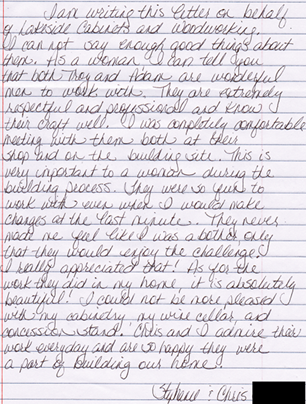 I am writing this letter on behalf
of Lakeside Cabinets and Woodworking.
I can not say enough good things about
them. As a woman I can tell you
that both Troy and Adam are wonderful
men to work with. They are extremely
respectful and professional and know
their craft well. I was completely comfortable
meeting with them both at their
shop and on the building site. This is
very important to a woman during the
building process. They were so fun to
work with even when I would make
changes at the last minute. They never
made me feel like I was a bother only
that they would enjoy the challenge.
I really appreciated that! As for the
work they did in my home, it is absolutely
beautiful! I could not be more pleased
with my cabinetry, my wine cellar, and
concession stand. Chris and I admire their
work everyday and are so happy they were
a part of building our home.
Stephanie : Chris